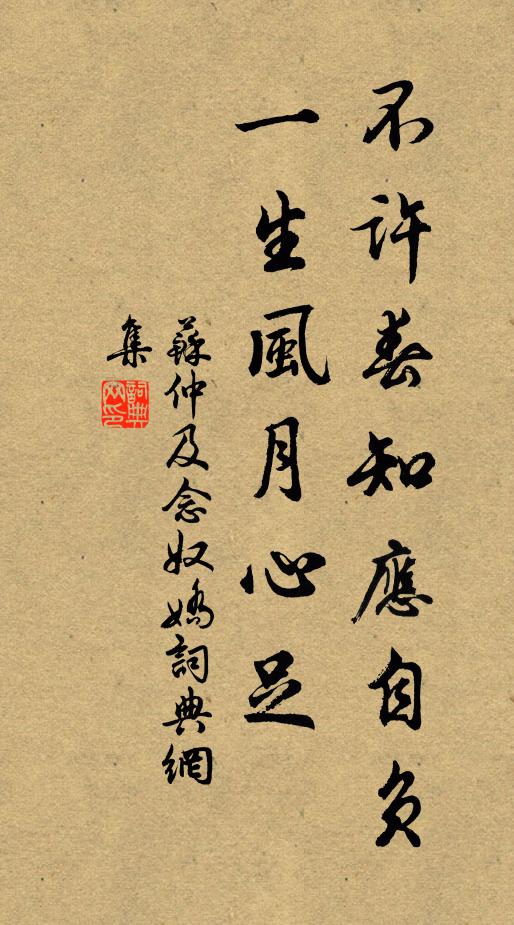 不許春知應自負
一生風月心足
蘇仲及念奴嬌詞典網
集
詞典網印